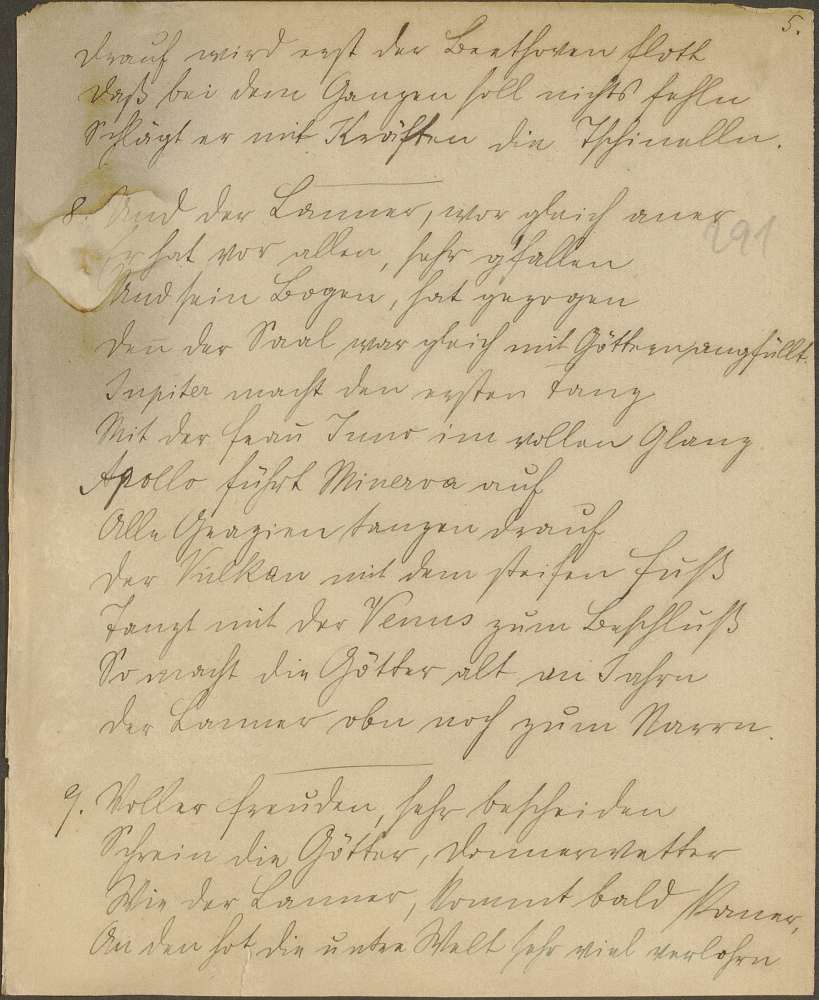 5.
Drauf wird erst der Beethoven flott
Daß bei dem Ganzen soll nichts fehln
Schlägt er mit Kräften die Tschinelln.
8. Und der Lanner, war gleich aner
Er hat vor allen, sehr gfallen
291
Und sein Bogen, hat gezogen
Den der Saal war gleich mit Göttern angfüllt.
Jupiter macht den ersten Tanz
Mit der Frau Juno im vollen Glanz
Apollo führt Minerva auf
Alle Grazien tanzen drauf
Der Vulkan mit dem steifen Fuß
Tanzt mit der Venus zum Beschluß
So macht die Götter alt an Jahrn
Der Lanner obn noch zum Narrn.
9. Voller Freuden, sehr bescheiden
Schrein die Götter, Donnerwetter
Wie der Lanner, kommt bald kaner,
An den hot die untre Welt sehr viel verlohrn